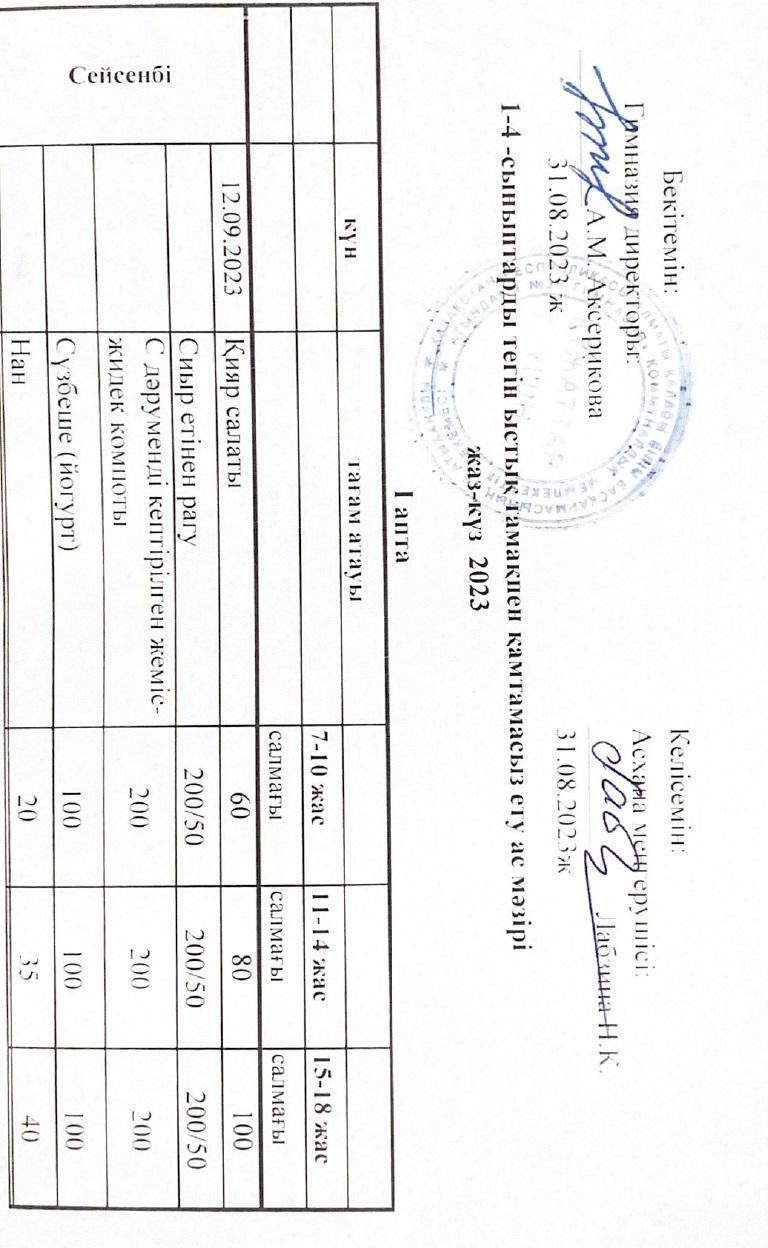 Бекітемін:
Гимназия директоры:
А.М. Аксерикова
31.08.2023 ж
Келісемін:
Асхана меңгерушісі:
Лабзина Н.К.
31.08.2023ж
1-4 -сыныптарды тегін ыстық тамақпен қамтамасыз ету ас мәзірі
жаз-күз 2023
1 апта
күн тағам атауы
7-10 жас 11-14 жас 15-18 жас
салмағы салмағы салмағы
Сейсенбі
12.09.2023 Қияр салаты 60 80 100
Сиыр етінен рагу 200/50 200/50 200/50
С дәруменді кептірілген жеміс-
жидек компоты 200 200 200
Сүзбеше (йогурт) 100 100 100
Нан 20 35 40